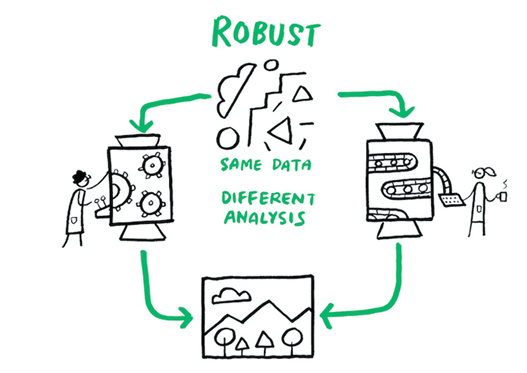 ROBUST
SAME DATA
DIFFERENT
ANALYSIS